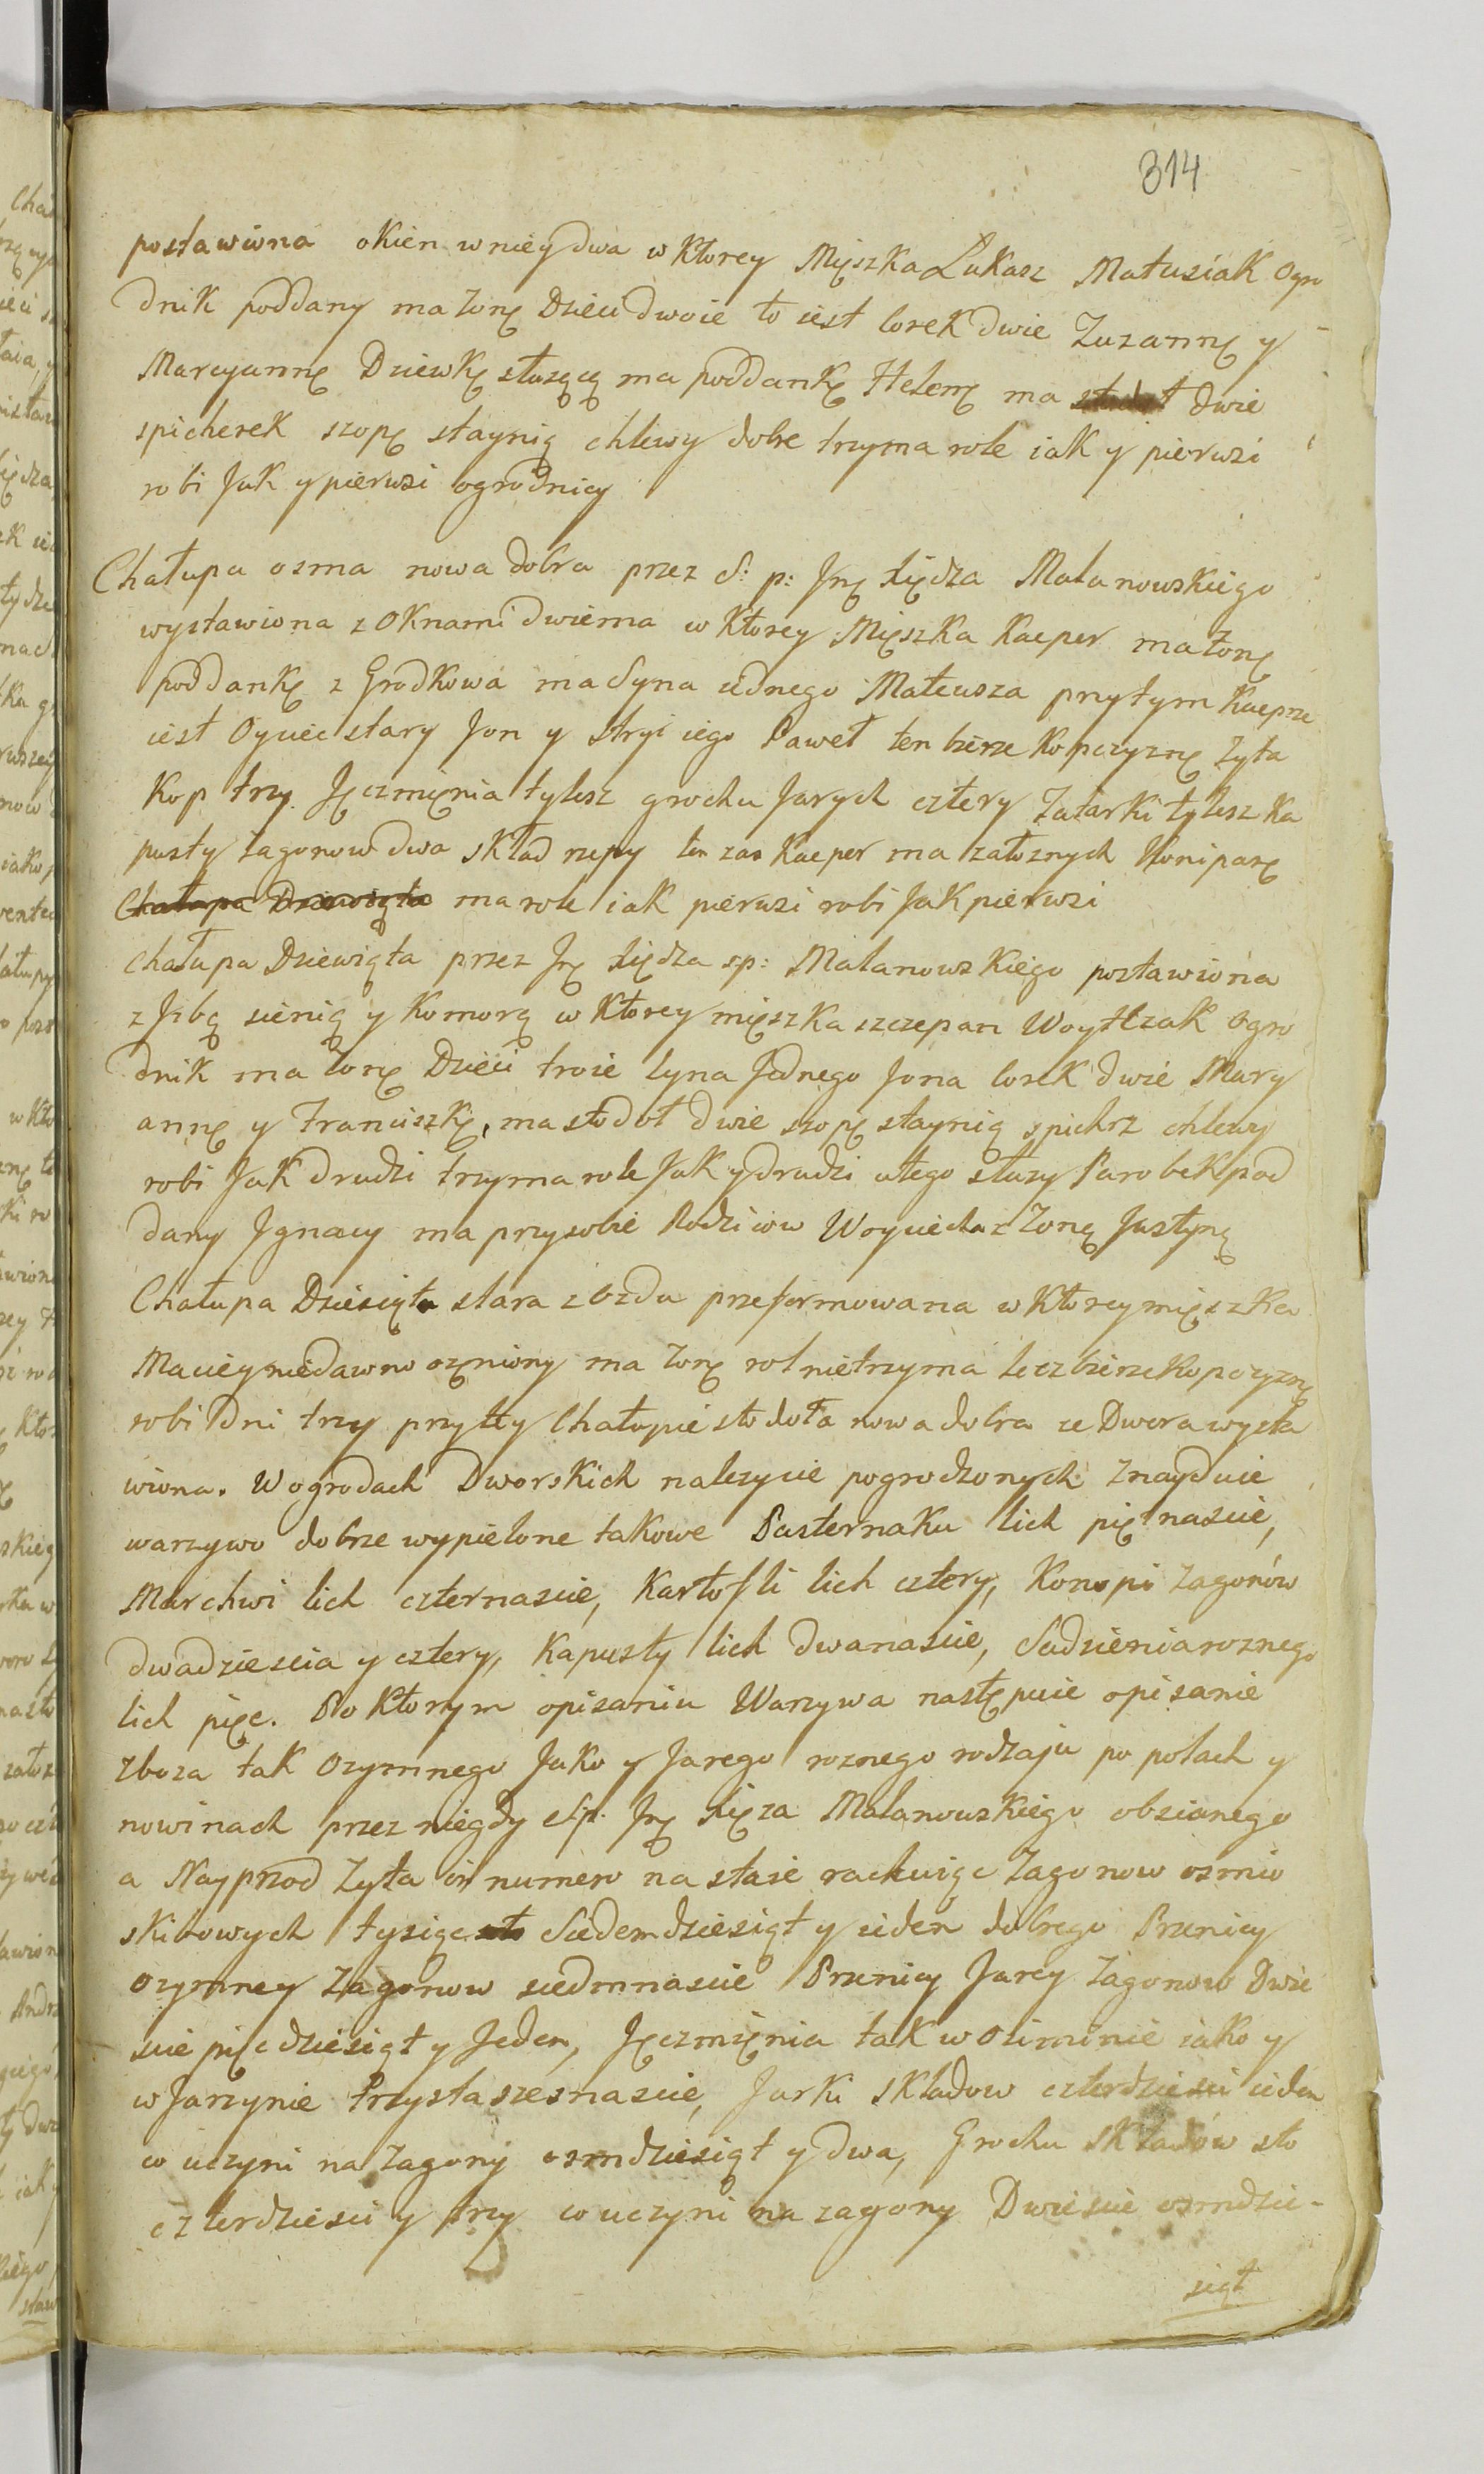 314
postawiona okien w niey dwa w ktorey Mięszka Łukasz Matusiak Ogro
dnik poddany ma zonę Dzieci dwoie to iest corek dwie Zuzannę y
Maryannę Dziewkę słuzącą ma poddankę Helenę ma dwie
spicherek szopę staynią chlewy dobre trzyma role iak y pierwsi
robi Jak y pierwsi ogrodnicy
Chałupa osma nowa dobra przez S: p: Jmę Xiędza Malanowskiego
wystawiona z oknami dwiema w ktorey Mięszka Kacper ma zonę
poddankę z Grodkowa ma Syna iednego Mateusza przytym Kacprze
iest Oyciec stary Jan y stryi iego Paweł ten bierze kopczyznę zyta
Kop trzy Jęczmięnia tylesz grochu Jarych cztery Tatarki tylesz ka
pusty zagonow dwa skład rzepy ten zas Kacper ma załoznych Koni parę
Chałupa Dziewiąta ma role iak pierwsi robi Jak pierwsi
Chałupa Dziewiąta przez Jmę Xiędza sp: Malanowskiego postawiona
z Jzbą sienią y Komorą w ktorey mięszka szczepan Woytczak Ogro
dnik ma zonę Dzieci troie Syna Jednego Jana corek dwie Mary
annę y Franciszkę, ma stodoł dwie szopę staynią spichrz chlewy
robi Jak drudzi trzyma role Jak y drudzi u tego słuzy Parobek pod
dany Jgnacy ma przy sobie Rodzicow Woyciecha z Zoną Justyną
Chałupa Dziesiąta stara z bzdu przeformowana w ktorey mięszka
Maciey niedawno ozęniony ma zonę rol nietrzyma lecz bierze kopczyznę
robi Dni trzy przy tey Chałupie stodoła nowa dobra ze Dwora wysta
wiona. W ogrodach Dworskich nalezycie pogrodzonych znayduie
warzywo dobrze wypielone takowe Pasternaku lich piętnascie,
Marchwi lich czternascie, Kartofli lich cztery, Konopi zagonów
dwadziescia y cztery, Kapusty lich dwanascie, Sadzienia roznego
lich pięc. Po ktorym opisaniu Warzywa następuie opisanie
zboza tak Ozymnego Jako y Jarego roznego rodzaju po polach y
nowinach przez niegdy S:p: Jmę Xięza Malanowskiego obsianego
a Nayprzod zyta in numero na staie rachuiąc zagonow osmio
skibowych tysiąc sto Siedemdziesiąt y ieden dobrego Przenicy
ozymney zagonow siedmnascie Przenicy Jarey zagonow Dwie
scie pięcdziesiąt y Jeden, Jęczmięnia tak w oziminie iako y
w Jarzynie trzysta szesnascie, Jarki składow czterdziesci ieden
co uczyni na zagony osmdziesiąt y dwa, Grochu składów sto
czterdziesci y trzy co uczyni na zagony Dwiescie osmdzie-
siąt